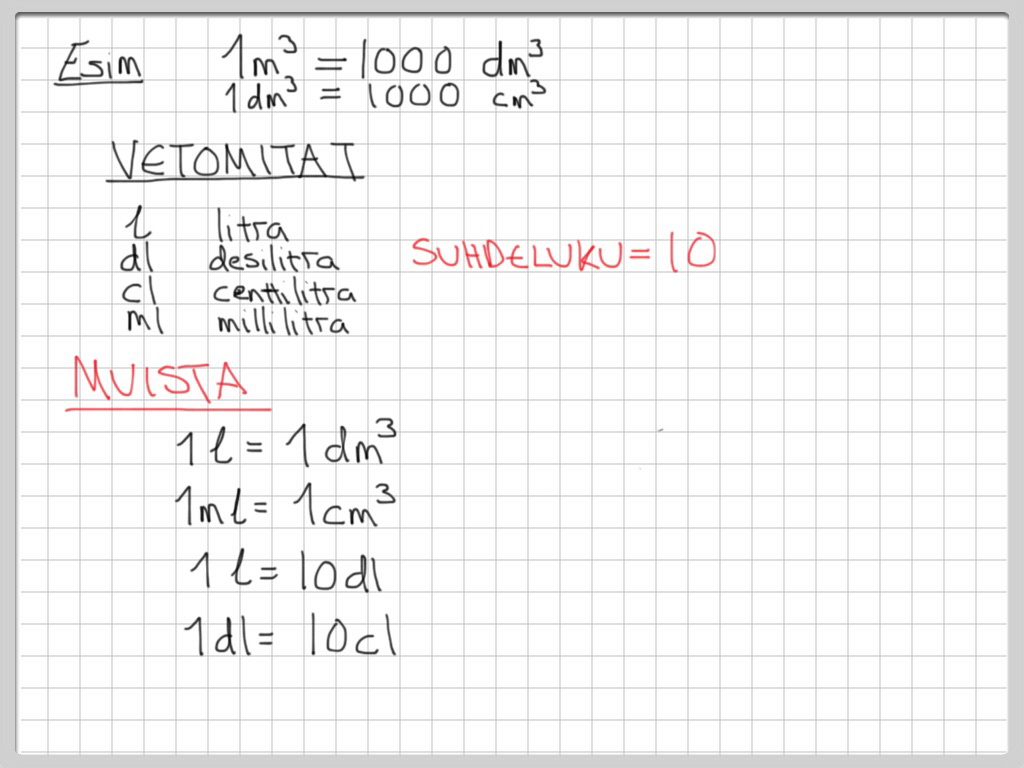 Esim 1m³ = 1000 dm³
1dm³ = 1000 cm³
VETOMITAT
l litra
dl desilitra SUHDELUKU = 10
cl centtilitra
ml millilitra
MUISTA
1 l = 1 dm³
1ml = 1cm³
1 l = 10dl
1dl = 10cl